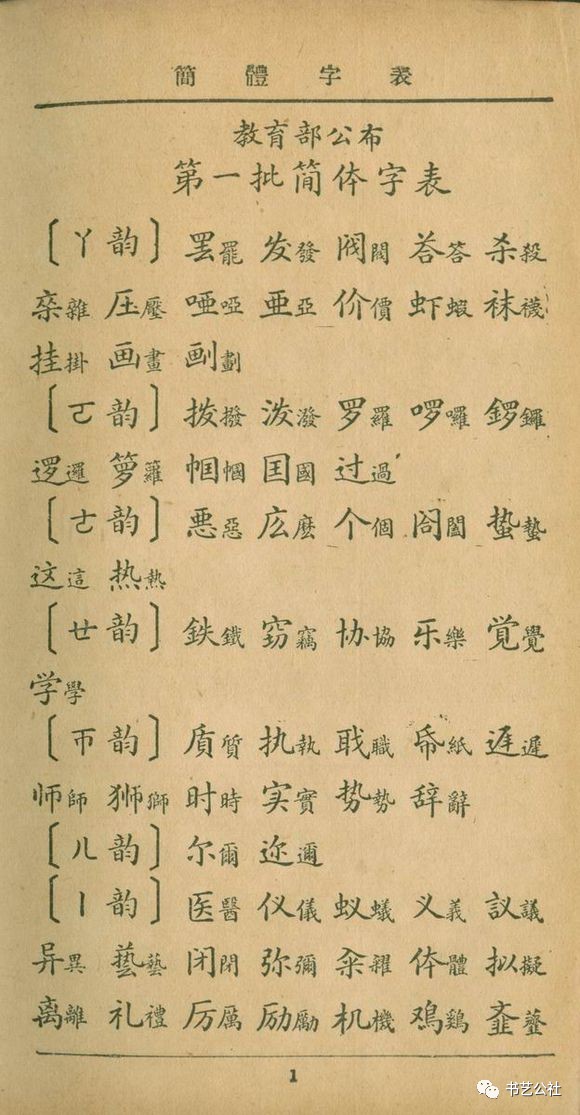 簡體字表
教育部公布
第一批简体字表
〔ㄚ韵〕 罢罷 发發 阀閥 荅答 杀殺
杂雜 压壓 哑啞 亚亞 价價 虾蝦 袜襪
挂掛 画畫 劃
〔ㄛ韵〕 拨撥 泼潑 罗羅 啰囉 鑼
逻邏 箩籮 帼幗 国國 过過
〔ㄜ韵〕 恶惡 庅麼 个個 閤闔 蛰蟄
这這 热熱
〔ㄝ韵〕 鉄鐵 窃竊 协協 乐樂 覚覺
学學
〔ㄭ韵〕 质質 执執 职職 帋紙 遅遲
师師 狮獅 时時 实實 势勢 辞辭
〔ㄦ韵〕 尔爾 迩邇
〔ㄧ韵〕 医醫 仪儀 蚁蟻 义義 議
异異 藝 闭閉 弥彌 籴糴 体體 拟擬
离離 礼禮 厉厲 励勵 机機 鸡鷄 齑虀
1
书艺公社